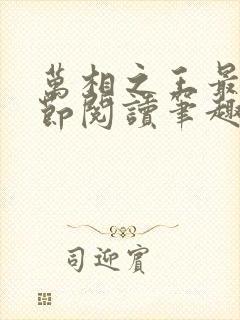 萬相之王最
節閱讀筆趣
司迎賓